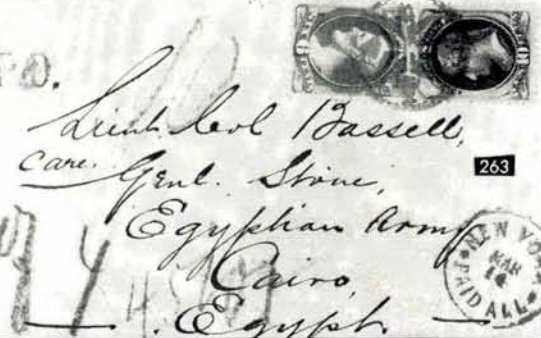 P.D.
Lieut Col Bassell,
Care. Genl. Stone,
Egyptian Army
Cairo,
Egypt.
263
NEW YORK
MAR
14
PAID ALL
10